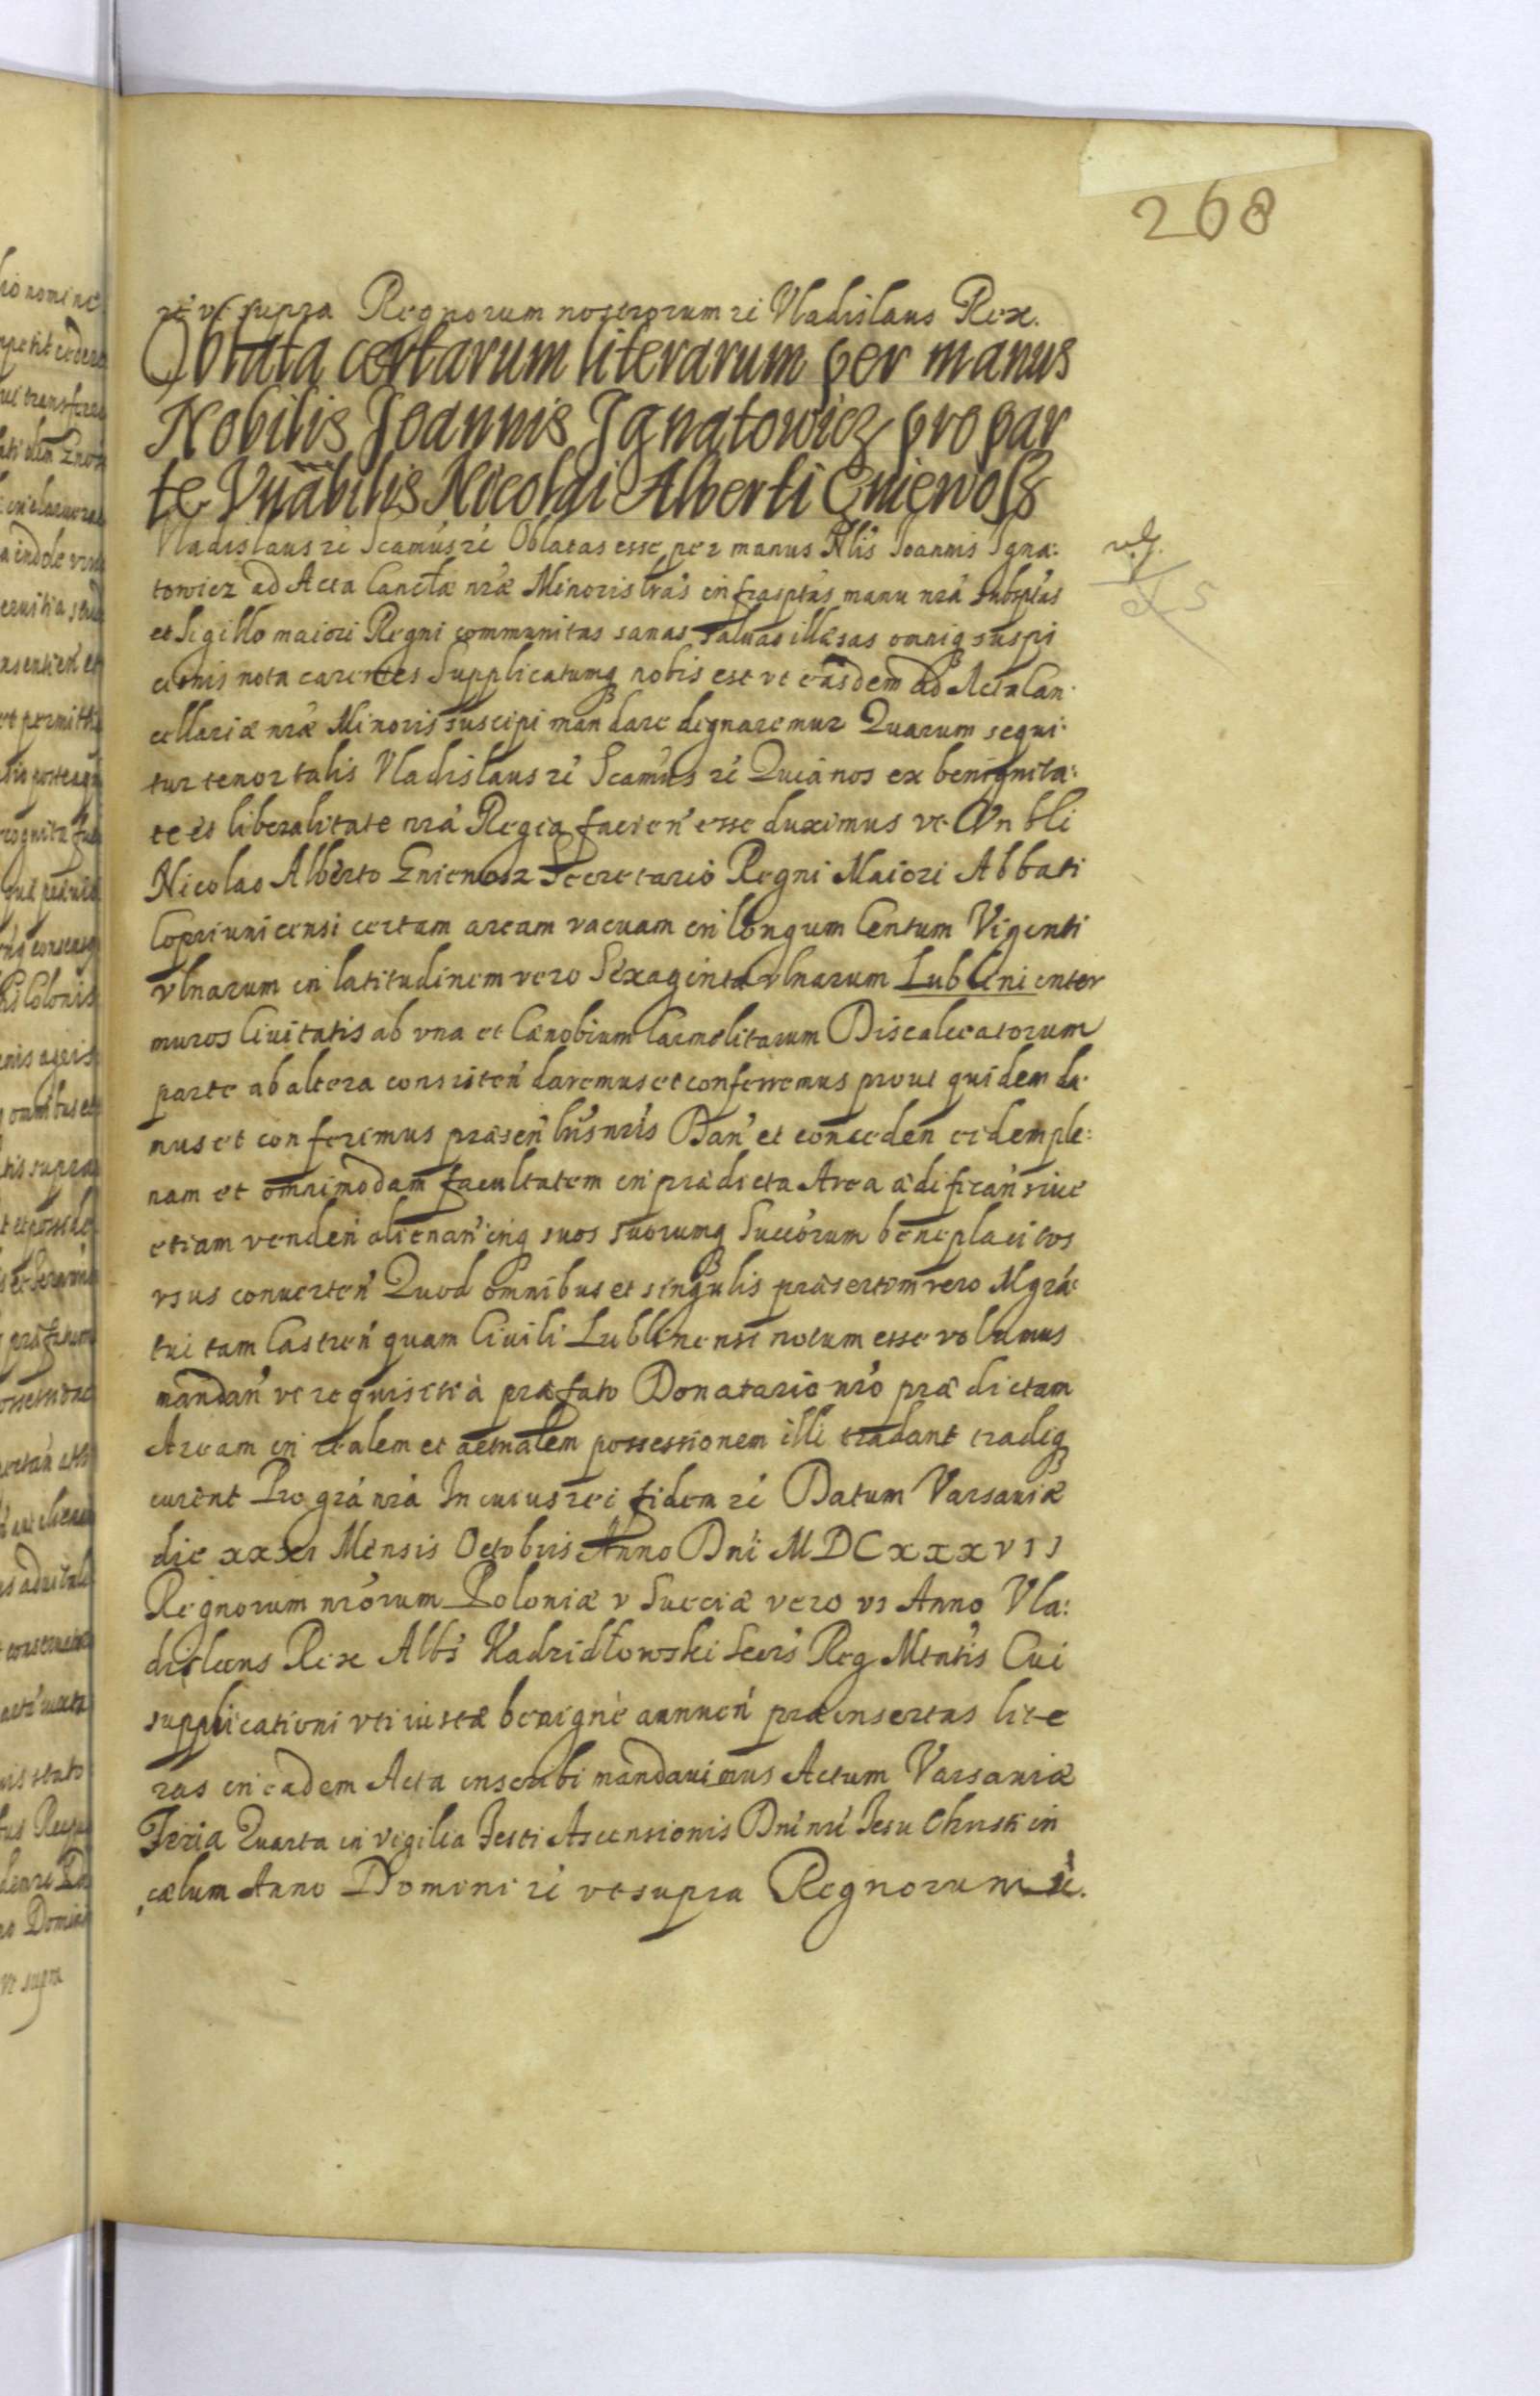 268
rć vt supra Regnorum nostrorum rć Vladislaus Rex.
Oblata certarum literarum per manus
Nobilis Joannis Jgnatowicz pro par
te Vnabilis Nicolai Alberti Gniewosz
Vladislaus rć Scamus rć Oblatas esse per manus Nlis Joannis Jgna:
towicz ad Acta Canctæ nræ Minoris lras infrasptas manu nra subsptas
et sigillo maiori Regni communitas sanas saluas illæsas omniq suspi
cionis nota carentes Supplicatumq nobis est vt easdem ad Acta Can
cellariæ nræ Minoris suscipi mandare dignaremur Quarum sequi
tur tenor talis Vladislaus rć Scamus rć Quia nos ex benignita:
te et liberalitate nra Regia facien esse duximus vt Vn bli
Nicolao Alberto Gniewosz Secretario Regni Maiori Abbati
Copriunicensi certam aream vacuam in longum Centum Viginti
vlnarum in latitudinem vero Sexaginta vlnarum Lublini inter
muros Ciuitatis ab vna et Cænobium Carmelitarum Discalceatorum
parte ab altera consisten daremus et conferremus prout quidem da
mus et conferimus præsen lris nris Dan et conceden eidem ple:
nam et omnimodam facultatem in prædicta Area ædifican siue
etiam venden alienan inq suos suorumq Succorum beneplacitos
vsus conuerten Quod omnibus et singulis præsertim vero Mgra
tui tam Castren quam Ciuili Lublinensi notum esse volumus
mandan vt requisiti à præfato Donatario nro prædictam
Aream in realem et actualem possessionem illi tradant tradiq
curent Pro gra nra In cuius rei fidem rć Datum Varsauiæ
die xxxi Mensis Octobris Anno Dni MDCxxxvii
Regnorum nrorum Poloniæ v Sueciæ vero vi Anno Vla:
dislaus Rex Albs Kadzidłowski Secrs Reg Mttis Cui
supplicationi vti iustæ benigne annuen præinsertas lite
ras in eadem Acta inscribi mandauimus Actum Varsauiæ
Feria Quarta in vigilia Festi Ascensionis Dni nri Jesu Christi in
cælum Anno Domini rć vt supra Regnorum rć.